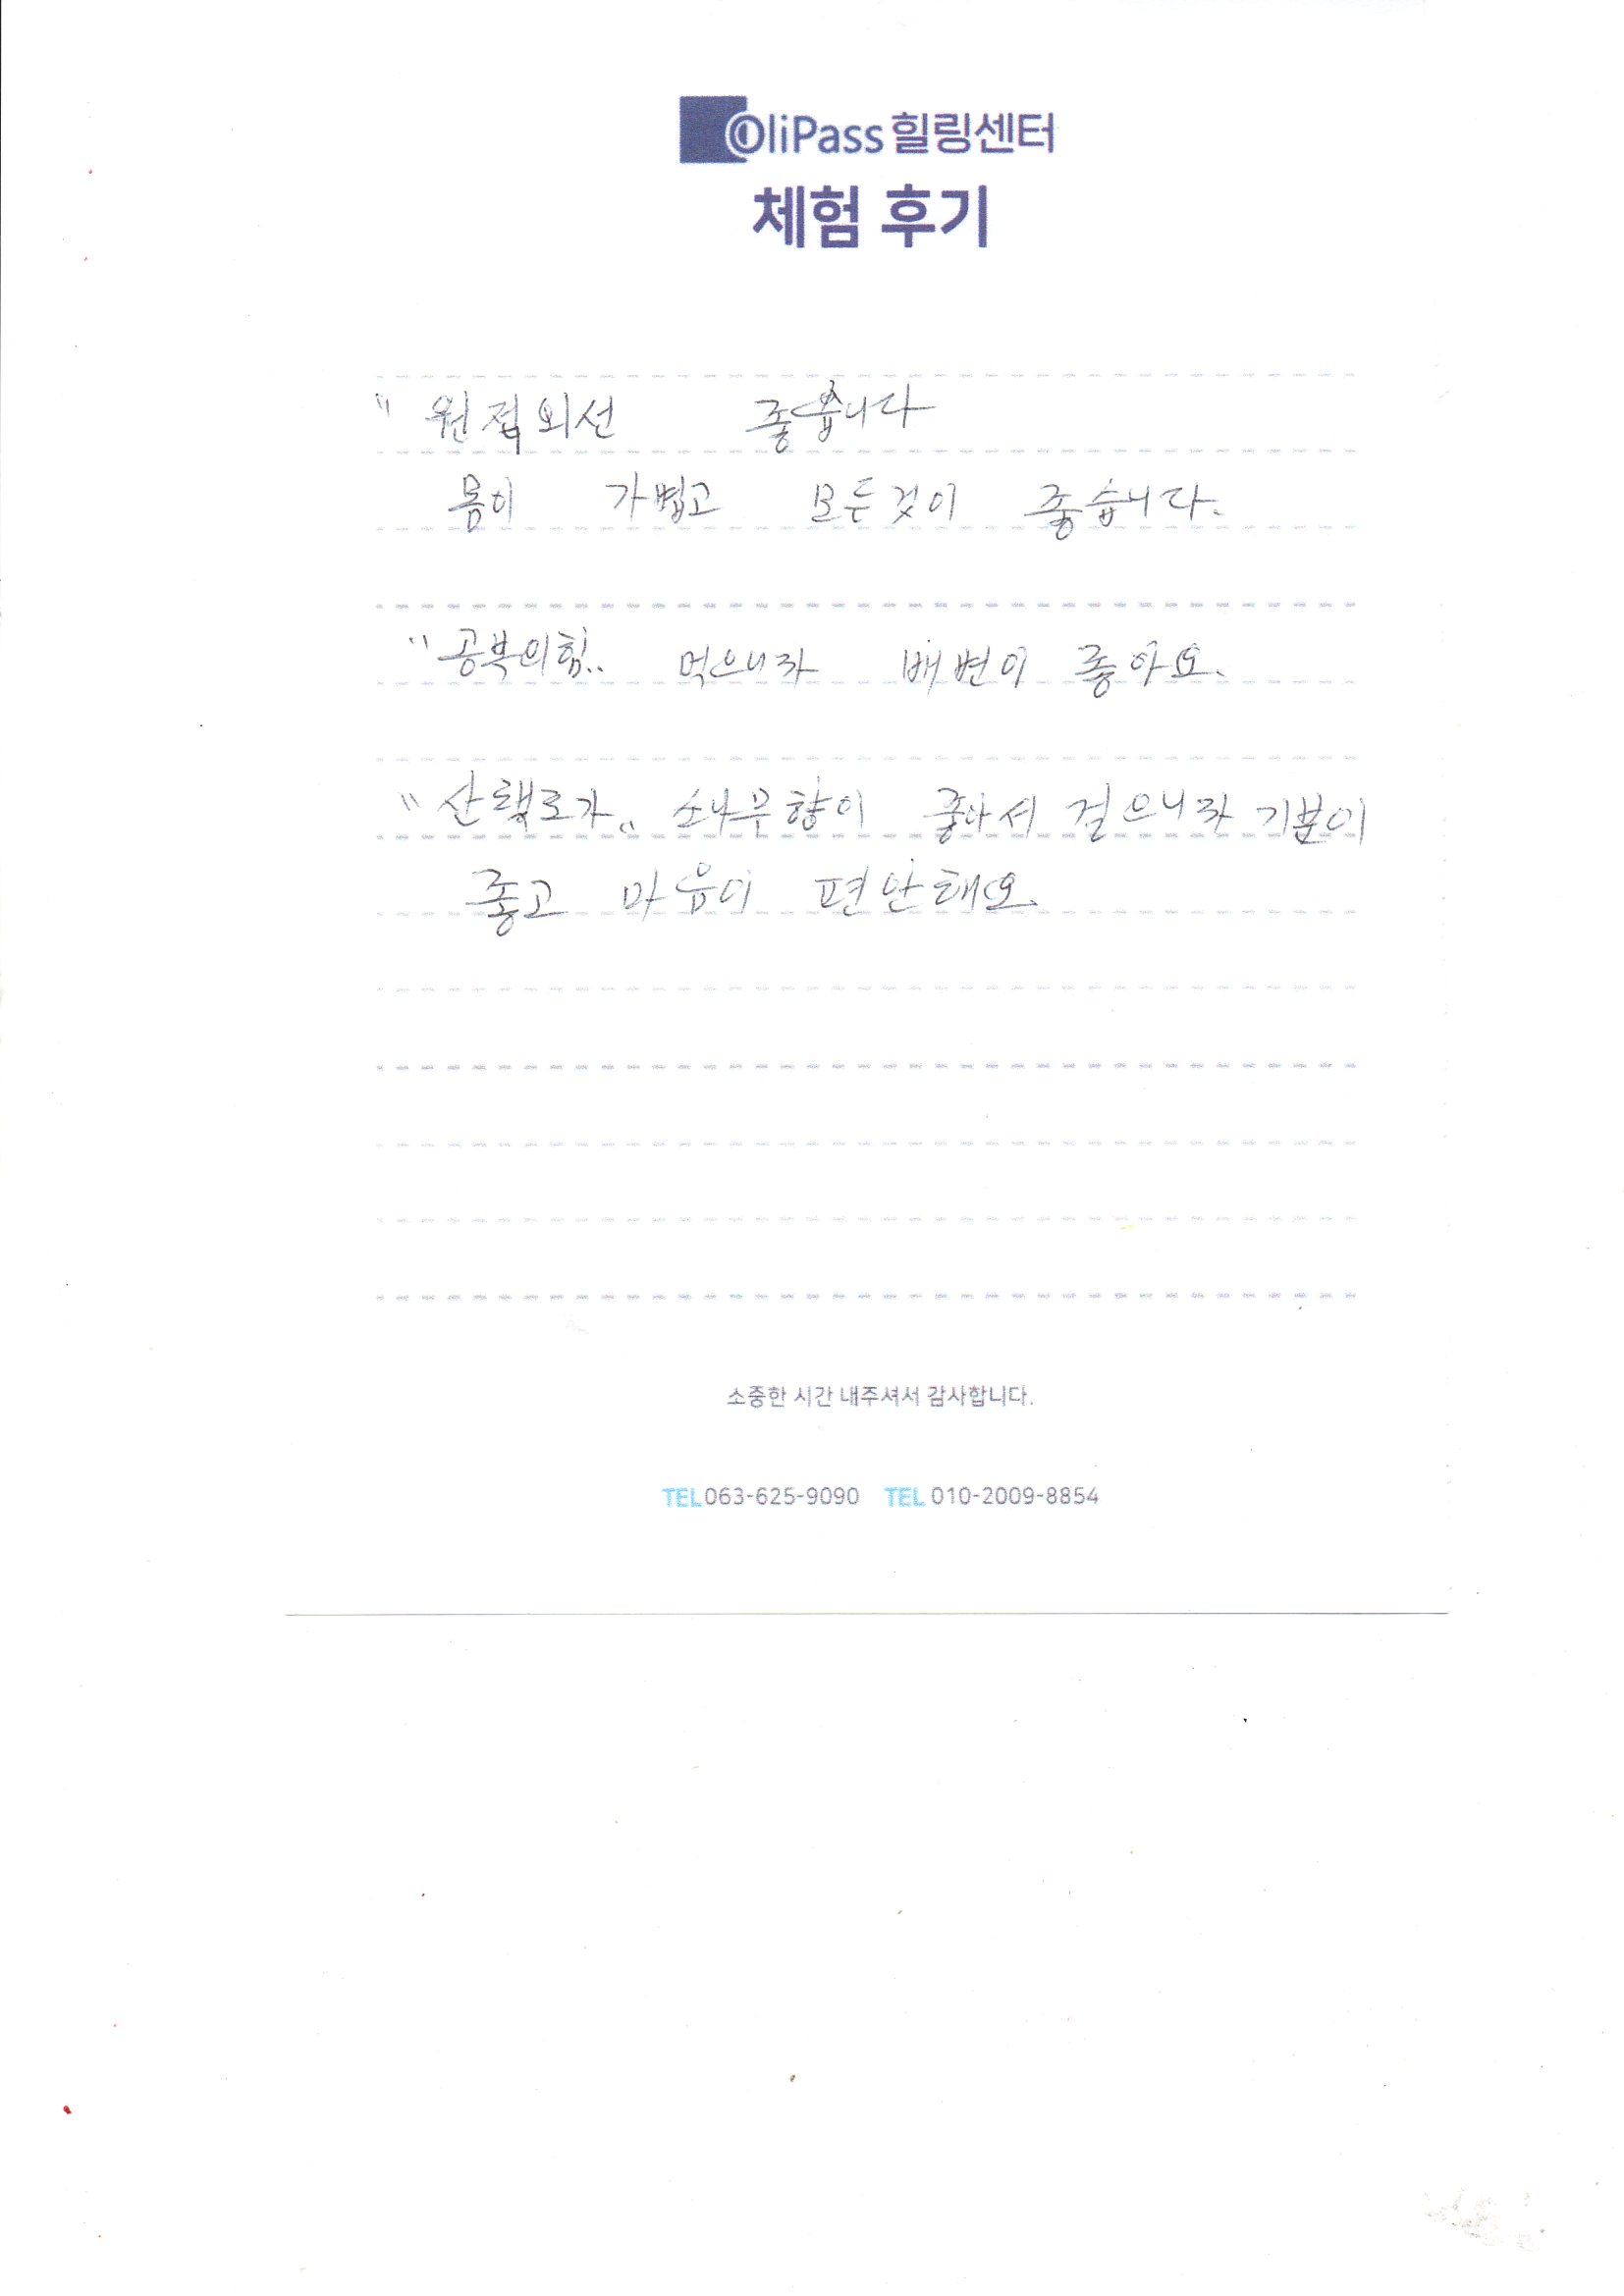 OliPass 힐링센터
체험 후기
" 원적외선 좋습니다
몸이 가볍고 모두것이 좋습니다.
"공복의힘.. 먹으니까 배변이 좋아요.
"산책로가„ 소나무향이 좋아서 걸으니까 기분이
좋고 마음이 편안해요.
소중한 시간 내주셔서 감사합니다.
TEL 063-625-9090 TEL 010-2009-8854